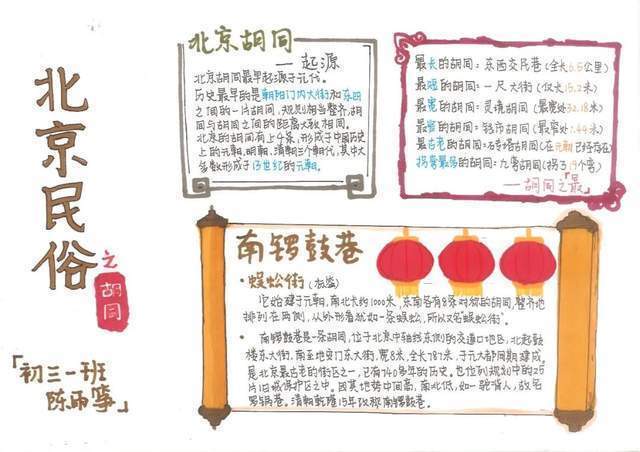 北京民俗
之
胡同
「初三一班
陈雨寧」
北京胡同
——起源
北京胡同最早起源于元代。
历史最早的是朝阳门内大街和东四
之间的一片胡同，规则相当整齐，胡
同与胡同之间的距离大致相同。
北京的胡同有上千条，形成于中国历史
上的元朝、明朝、清朝三个朝代，其中大
多数形成于13世纪的元朝。
最长的胡同：东西交民巷（全长6.5公里）
最短的胡同：一尺大街（仅长15.2米）
最宽的胡同：灵境胡同（最宽处32.18米）
最窄的胡同：钱市胡同（最窄处0.44米）
最古老的胡同：砖塔胡同（在元朝已经存在）
拐弯最多的胡同：九弯胡同（拐了19个弯）
——胡同之「最」
南锣鼓巷
·蜈蚣街
它始建于元朝，南北长约1000米，东南各有8条对称的胡同，整齐地
排列在两侧，从外形看犹如一条蜈蚣，所以又名蜈蚣街”。
·南锣鼓巷是一条胡同，位于北京中轴线东侧的交道口地区，北起鼓
楼东大街，南至地安门东大街，宽8米，全长787米，于元大都同期建成。
是北京最古老的街区之一，已有740多年的历史。也位列规划中的25
片旧城保护区之中。因其地势中间高，南北低，如一驼背人，故名
罗锅巷。清朝乾隆15年改称南锣鼓巷。